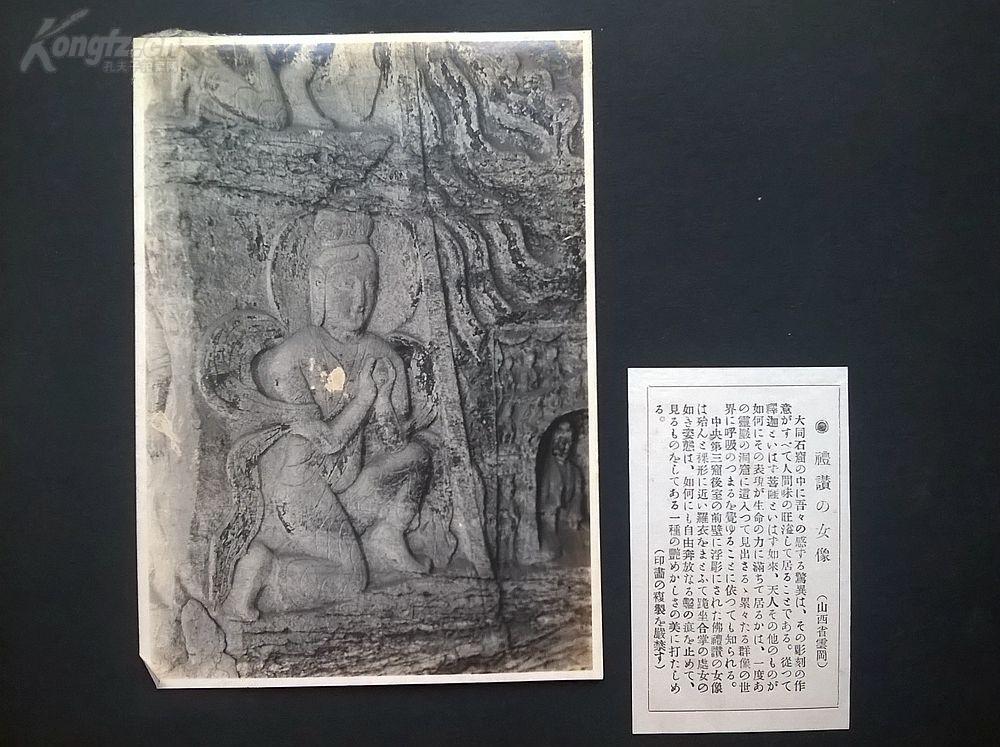 Kongtz.cn
孔夫子旧书网
◉ 禮讃の女像 (山西省雲岡)
大同石窟の中に吾々の感ずる驚異は、その彫刻の作
意がすべて人間味の旺溢して居ることである。從つて
釋迦といはず菩薩といはず如來、天人その他のものが
如何にその表現が生命の力に滿ちて居るかは、一度あ
の靈巖の洞窟に這入つて見出さるゝ累々たる群像の世
界に呼吸のつまるを覺ゆることに依つても知られる。
中央第三窟後室の前壁に浮彫にされた佛禮讃の女像
は殆んと裸形に近い羅衣をまとふて跪坐合掌の處女の
如き姿態は、如何にも自由奔放なる鑿の痕を止めて、
見るものをしてある一種の艶めかしさの美に打たしめ
る。
(印畫の複製を嚴禁す)